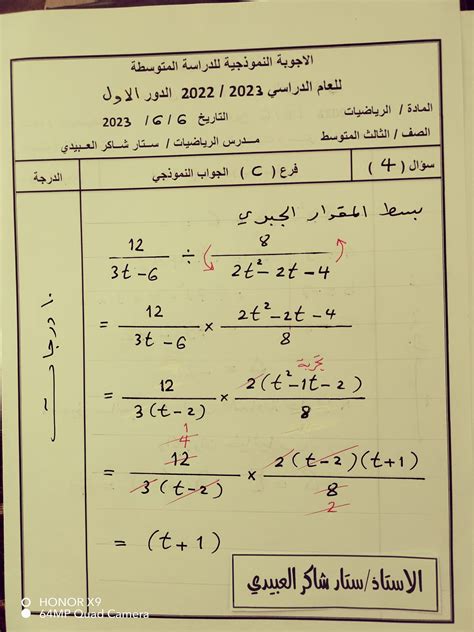 الاجوبة النموذجية للدراسة المتوسطة
للعام الدراسي 2023 / 2022 الدور الاول
المادة / الرياضيات التاريخ 6 / 6 / 2023
الصف / الثالث المتوسط مدرس الرياضيات / ستار شاكر العبيدي
سؤال ( 4 ) فرع ( C ) الجواب النموذجي الدرجة
بسط المقدار الجبري
12/(3t-6) ÷ 8/(2t²-2t-4)
= 12/(3t-6) × (2t²-2t-4)/8
تجربة
= 12/(3(t-2)) × 2(t²-1t-2)/8
1
4
= 12/(3(t-2)) × 2(t-2)(t+1)/8
2
= (t+1)
١٠ درجات
الاستاذ/ستار شاكر العبيدي
HONOR X9
64MP Quad Camera